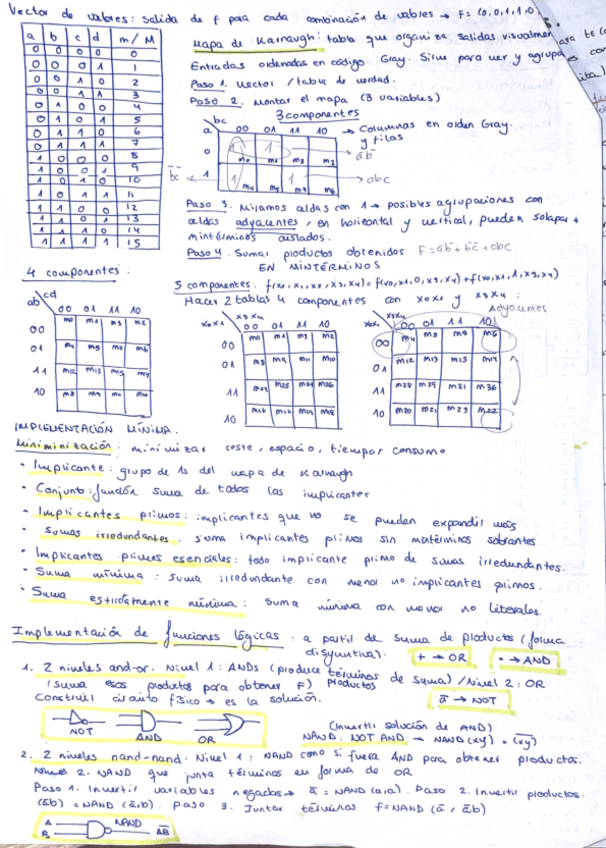 Vector de valores: salida de f para cada combinación de valores → f = (0,0,1,1,0,
a b c d m/M
0 0 0 0 0
0 0 0 1 1
0 0 1 0 2
0 0 1 1 3
0 1 0 0 4
0 1 0 1 5
0 1 1 0 6
0 1 1 1 7
1 0 0 0 8
1 0 0 1 9
1 0 1 0 10
1 0 1 1 11
1 1 0 0 12
1 1 0 1 13
1 1 1 0 14
1 1 1 1 15
Mapa de Karnaugh: tabla que organiza salidas visualmen
Entradas ordenadas en código Gray. Sirve para ver y agrupa
Paso 1. Vector / tabla de verdad.
Paso 2. Montar el mapa (3 variables)
3 componentes
bc
a 00 01 11 10 → Columnas en orden Gray.
y filas
0 1 1
m0 m1 m3 m2
āb̄
1 1
m4 m5 m7 m6
b̄c̄
abc
Paso 3. Miramos celdas con 1 → posibles agrupaciones con
celdas adyacentes, en horizontal y vertical, pueden solapar +
mintérminos aislados.
Paso 4. Sumar productos obtenidos F = āb̄ + b̄c̄ + abc
EN MINTÉRMINOS
4 componentes:
cd
ab 00 01 11 10
00 m0 m1 m3 m2
01 m4 m5 m7 m6
11 m12 m13 m15 m14
10 m8 m9 m11 m10
5 componentes: f(x0, x1, x2, x3, x4) = f(x0, x1, 0, x3, x4) + f(x0, x1, 1, x3, x4)
Hacer 2 tablas 4 componentes con x0x1 y x3x4:
Adyacentes
x3x4
x0x1 00 01 11 10
00 m0 m1 m3 m2
01
11
10
x3x4
x0x1 00 01 11 10
00 m4 m5 m6
01 m12 m13 m15 m14
11 m28 m29 m31
10 m20 m21 m23 m22
IMPLEMENTACIÓN MÍNIMA.
Minimización: minimizar coste, espacio, tiempo, consumo
· Implicante: grupo de 1s del mapa de Karnaugh
· Conjunto: función suma de todos los implicantes
· Implicantes primos: implicantes que no se pueden expandir más
· Sumas irredundantes: suma implicantes primos sin mintérminos sobrantes
· Implicantes primos esenciales: todo implicante primo de sumas irredundantes.
· Suma mínima: suma irredundante con menor no implicantes primos.
· Suma estrictamente mínima: suma mínima con menor no literales.
Implementación de funciones lógicas: a partir de suma de productos (forma
disyuntiva). + → OR · → AND
1. 2 niveles and-or. Nivel 1: ANDs (produce términos de suma) / Nivel 2: OR
(suma esos productos para obtener F) productos
Construir circuito físico → es la solución.
ā → NOT
NOT AND OR
(Invertir solución de AND)
NAND: NOT AND → NAND(xy) = (xy)̄
2. 2 niveles nand-nand. Nivel 1: NAND como si fuera AND para obtener productos.
Nivel 2. NAND que junta términos en forma de OR
Paso 1. Invertir variables negadas → ā = NAND(a,a). Paso 2. Invertir productos:
(āb) = NAND(ā,b). Paso 3. Juntar términos f = NAND(ā, āb)
A
B NAND AB